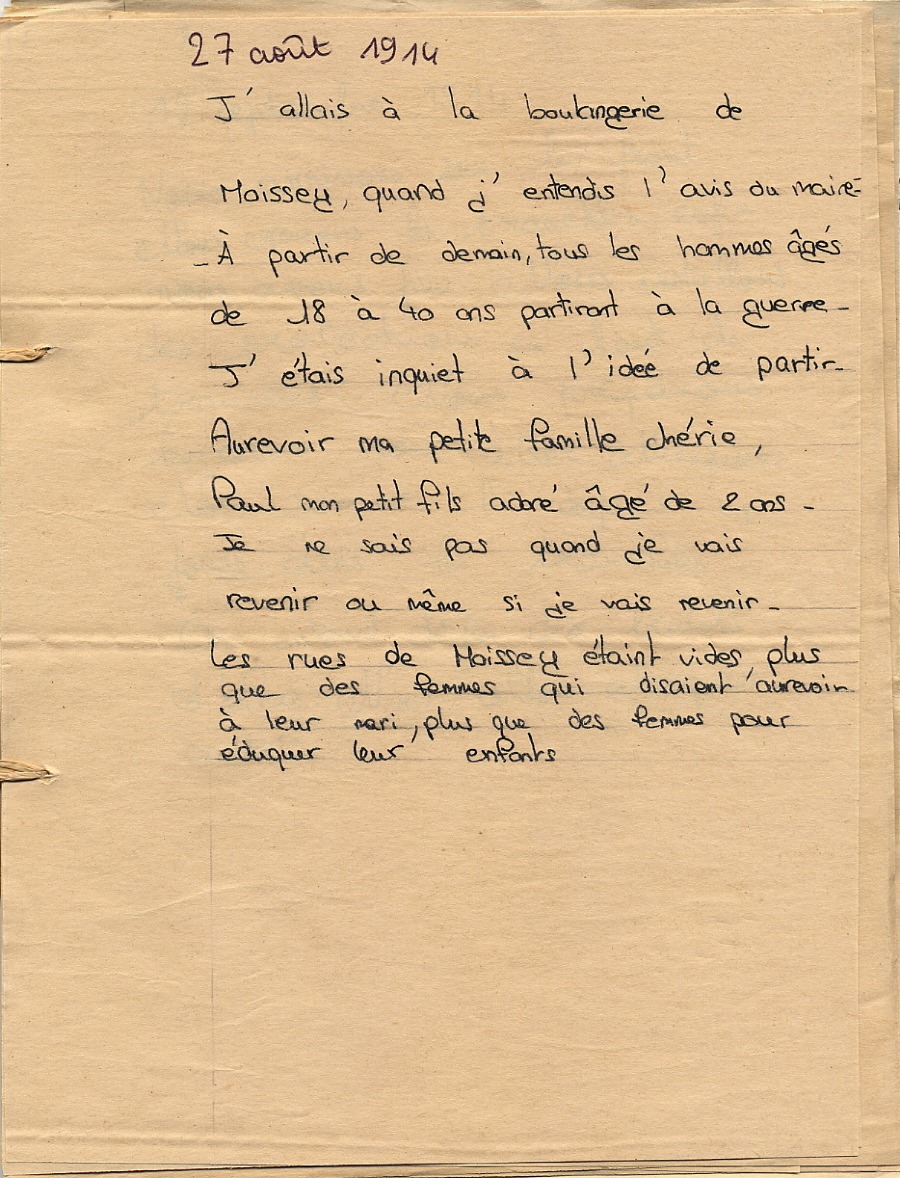 27 août 1914
J' allais à la boulangerie de
Moissey, quand j' entendis l' avis du maire-
- À partir de demain, tous les hommes âgés
de 18 à 40 ans partiront à la guerre -
J' étais inquiet à l' idée de partir -
Aurevoir ma petite famille chérie,
Paul mon petit fils adoré âgé de 2 ans -
Je ne sais pas quand je vais
revenir ou même si je vais revenir -
Les rues de Moissey étaint vides, plus
que des femmes qui disaient aurevoir
à leur mari, plus que des femmes pour
éduquer leur enfants